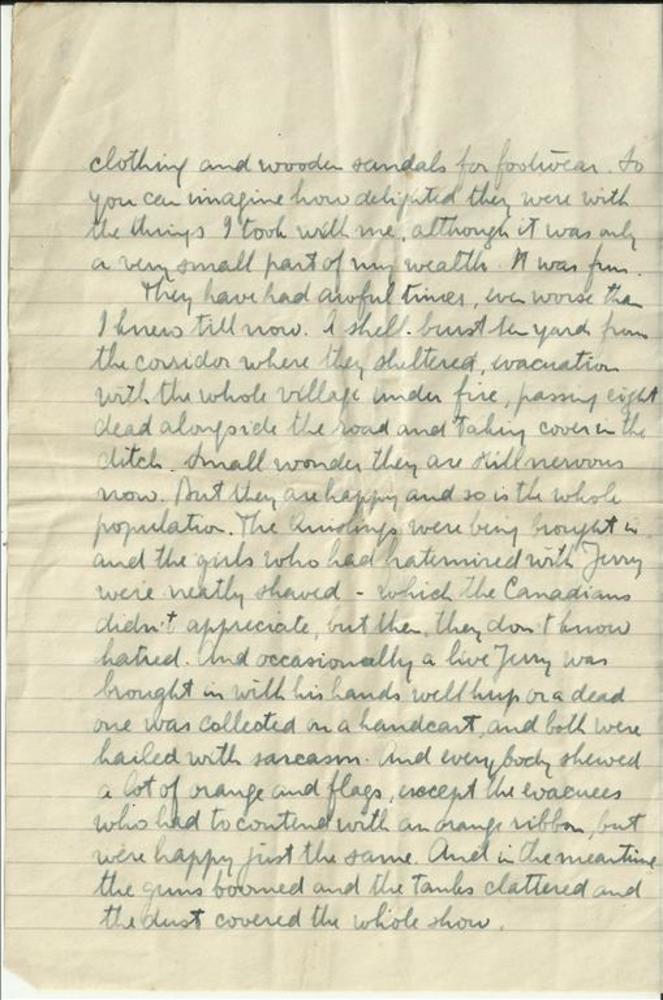 clothing and wooden sandals for footwear. So
you can imagine how delighted they were with
the things I took with me, although it was only
a very small part of my wealth. It was fun.
They have had awful times, even worse than
I knew till now. A shell-burst ten yards from
the corridor where they sheltered, evacuation
with the whole village under fire, passing eight
dead alongside the road and taking cover in the
ditch. Small wonder they are still nervous
now. But they are happy and so is the whole
population. The Quislings were being brought in
and the girls who had fraternised with Jerry
were neatly shaved - which the Canadians
didn't appreciate, but then, they don't know
hatred. And occasionally a live Jerry was
brought in with his hands well up or a dead
one was collected on a handcart, and both were
hailed with sarcasm. And everybody shewed
a lot of orange and flags, except the evacuees
who had to contend with an orange ribbon, but
were happy just the same. And in the meantime
the guns boomed and the tanks clattered and
the dust covered the whole show.